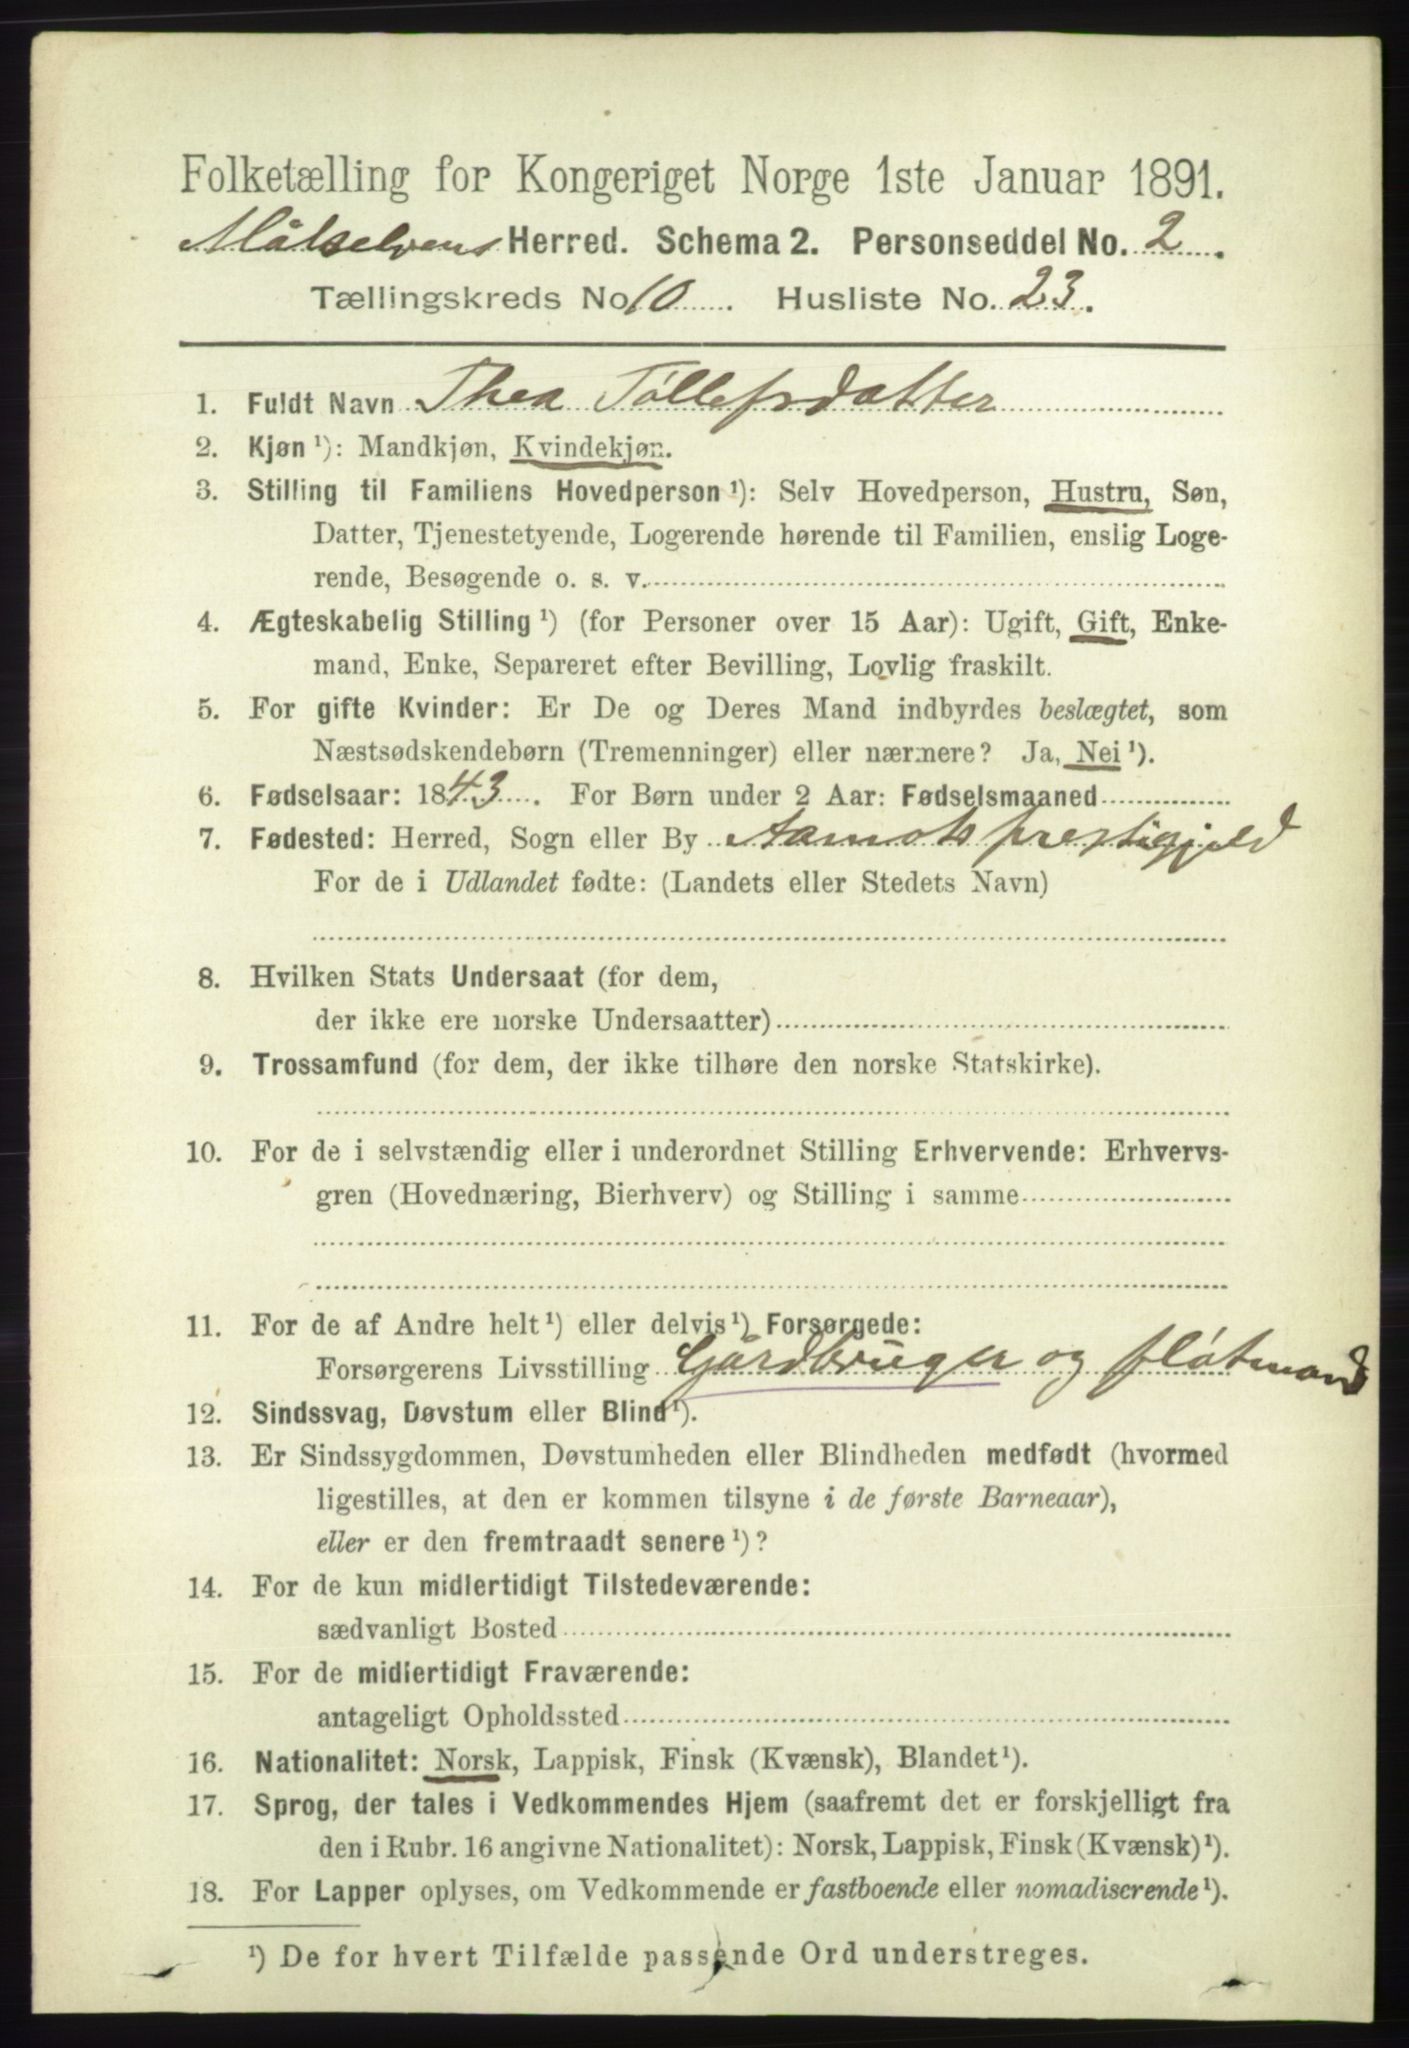 Folketælling for Kongeriget Norge 1ste Januar 1891.
Målselvens Herred. Schema 2. Personseddel No. 2.
Tællingskreds No 10. Husliste No. 23.
1. Fuldt Navn Thea Tollefsdatter
2. Kjøn ¹): Mandkjøn, Kvindekjøn.
3. Stilling til Familiens Hovedperson ¹): Selv Hovedperson, Hustru, Søn,
Datter, Tjenestetyende, Logerende hørende til Familien, enslig Loge-
rende, Besøgende o. s. v.
4. Ægteskabelig Stilling ¹) (for Personer over 15 Aar): Ugift, Gift, Enke-
mand, Enke, Separeret efter Bevilling, Lovlig fraskilt.
5. For gifte Kvinder: Er De og Deres Mand indbyrdes beslægtet, som
Næstsødskendebørn (Tremenninger) eller nærmere? Ja, Nei ¹).
6. Fødselsaar: 1843. For Børn under 2 Aar: Fødselsmaaned
7. Fødested: Herred, Sogn eller By Aamots prestigjeld
For de i Udlandet fødte: (Landets eller Stedets Navn)
8. Hvilken Stats Undersaat (for dem,
der ikke ere norske Undersaatter)
9. Trossamfund (for dem, der ikke tilhøre den norske Statskirke).
10. For de i selvstændig eller i underordnet Stilling Erhvervende: Erhvervs-
gren (Hovednæring, Bierhverv) og Stilling i samme
11. For de af Andre helt ¹) eller delvis ¹) Forsørgede:
Forsørgerens Livsstilling Gårdbruger og fløtmand
12. Sindssvag, Døvstum eller Blind ¹).
13. Er Sindssygdommen, Døvstumheden eller Blindheden medfødt (hvormed
ligestilles, at den er kommen tilsyne i de første Barneaar),
eller er den fremtraadt senere ¹)?
14. For de kun midlertidigt Tilstedeværende:
sædvanligt Bosted
15. For de midlertidigt Fraværende:
antageligt Opholdssted
16. Nationalitet: Norsk, Lappisk, Finsk (Kvænsk), Blandet ¹).
17. Sprog, der tales i Vedkommendes Hjem (saafremt det er forskjelligt fra
den i Rubr. 16 angivne Nationalitet): Norsk, Lappisk, Finsk (Kvænsk) ¹).
18. For Lapper oplyses, om Vedkommende er fastboende eller nomadiserende ¹).
¹) De for hvert Tilfælde passende Ord understreges.